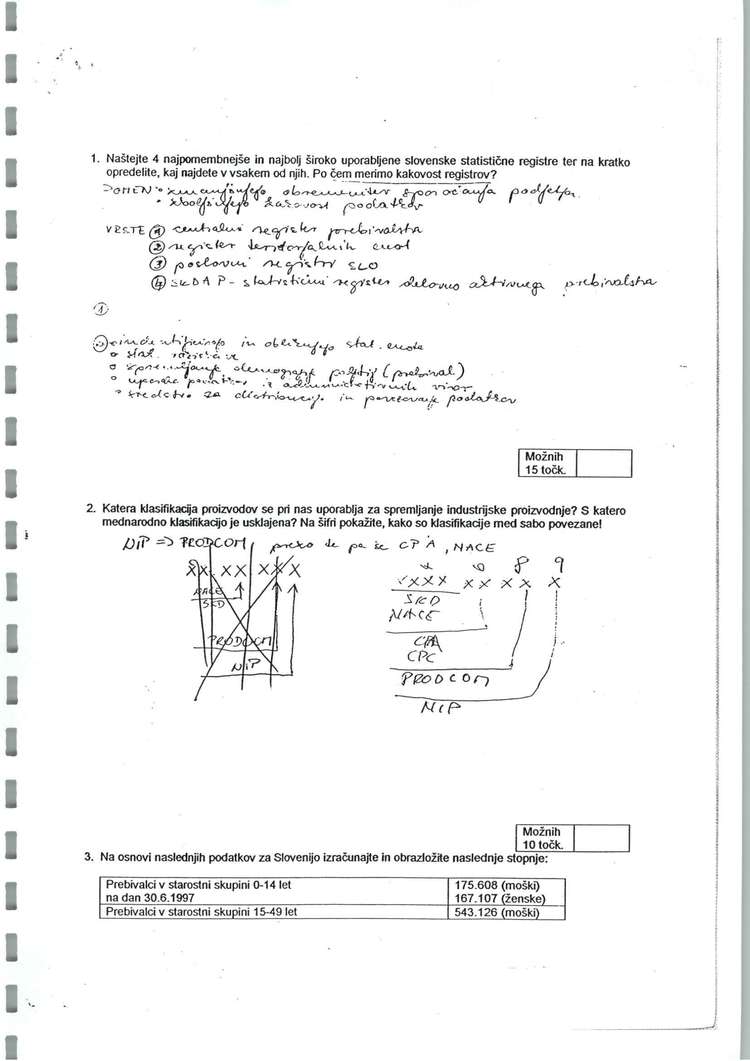 1. Naštejte 4 najpomembnejše in najbolj široko uporabljene slovenske statistične registre ter na kratko
opredelite, kaj najdete v vsakem od njih. Po čem merimo kakovost registrov?
POMEN • zmanjšujejo obremenitev sporočanja podjetja
• izboljšujejo kakovost podatkov
VRSTE ① centralni register prebivalstva
② register teritorjalnih enot
③ poslovni registri SLO
④ SRDAP - statistični register delovno aktivnega prebivalstva
①
in oblikujejo stat. enote
spremljanje demografije (prebival.)
uporaba podatkov iz administrativnih virov
sredstvo za distribucijo in povezovanje podatkov
Možnih
15 točk.
2. Katera klasifikacija proizvodov se pri nas uporablja za spremljanje industrijske proizvodnje? S katero
mednarodno klasifikacijo je usklajena? Na šifri pokažite, kako so klasifikacije med sabo povezane!
NIP => PRODCOM, preko te pa še CPA, NACE
XX.XX XXX
NACE
SKD
PRODCOM
NIP
4 6 8 9
XXXX XX XX X
SKD
NACE
CPA
CPC
PRODCOM
NIP
Možnih
10 točk.
3. Na osnovi naslednjih podatkov za Slovenijo izračunajte in obrazložite naslednje stopnje:
Prebivalci v starostni skupini 0-14 let 175.608 (moški)
na dan 30.6.1997 167.107 (ženske)
Prebivalci v starostni skupini 15-49 let 543.126 (moški)